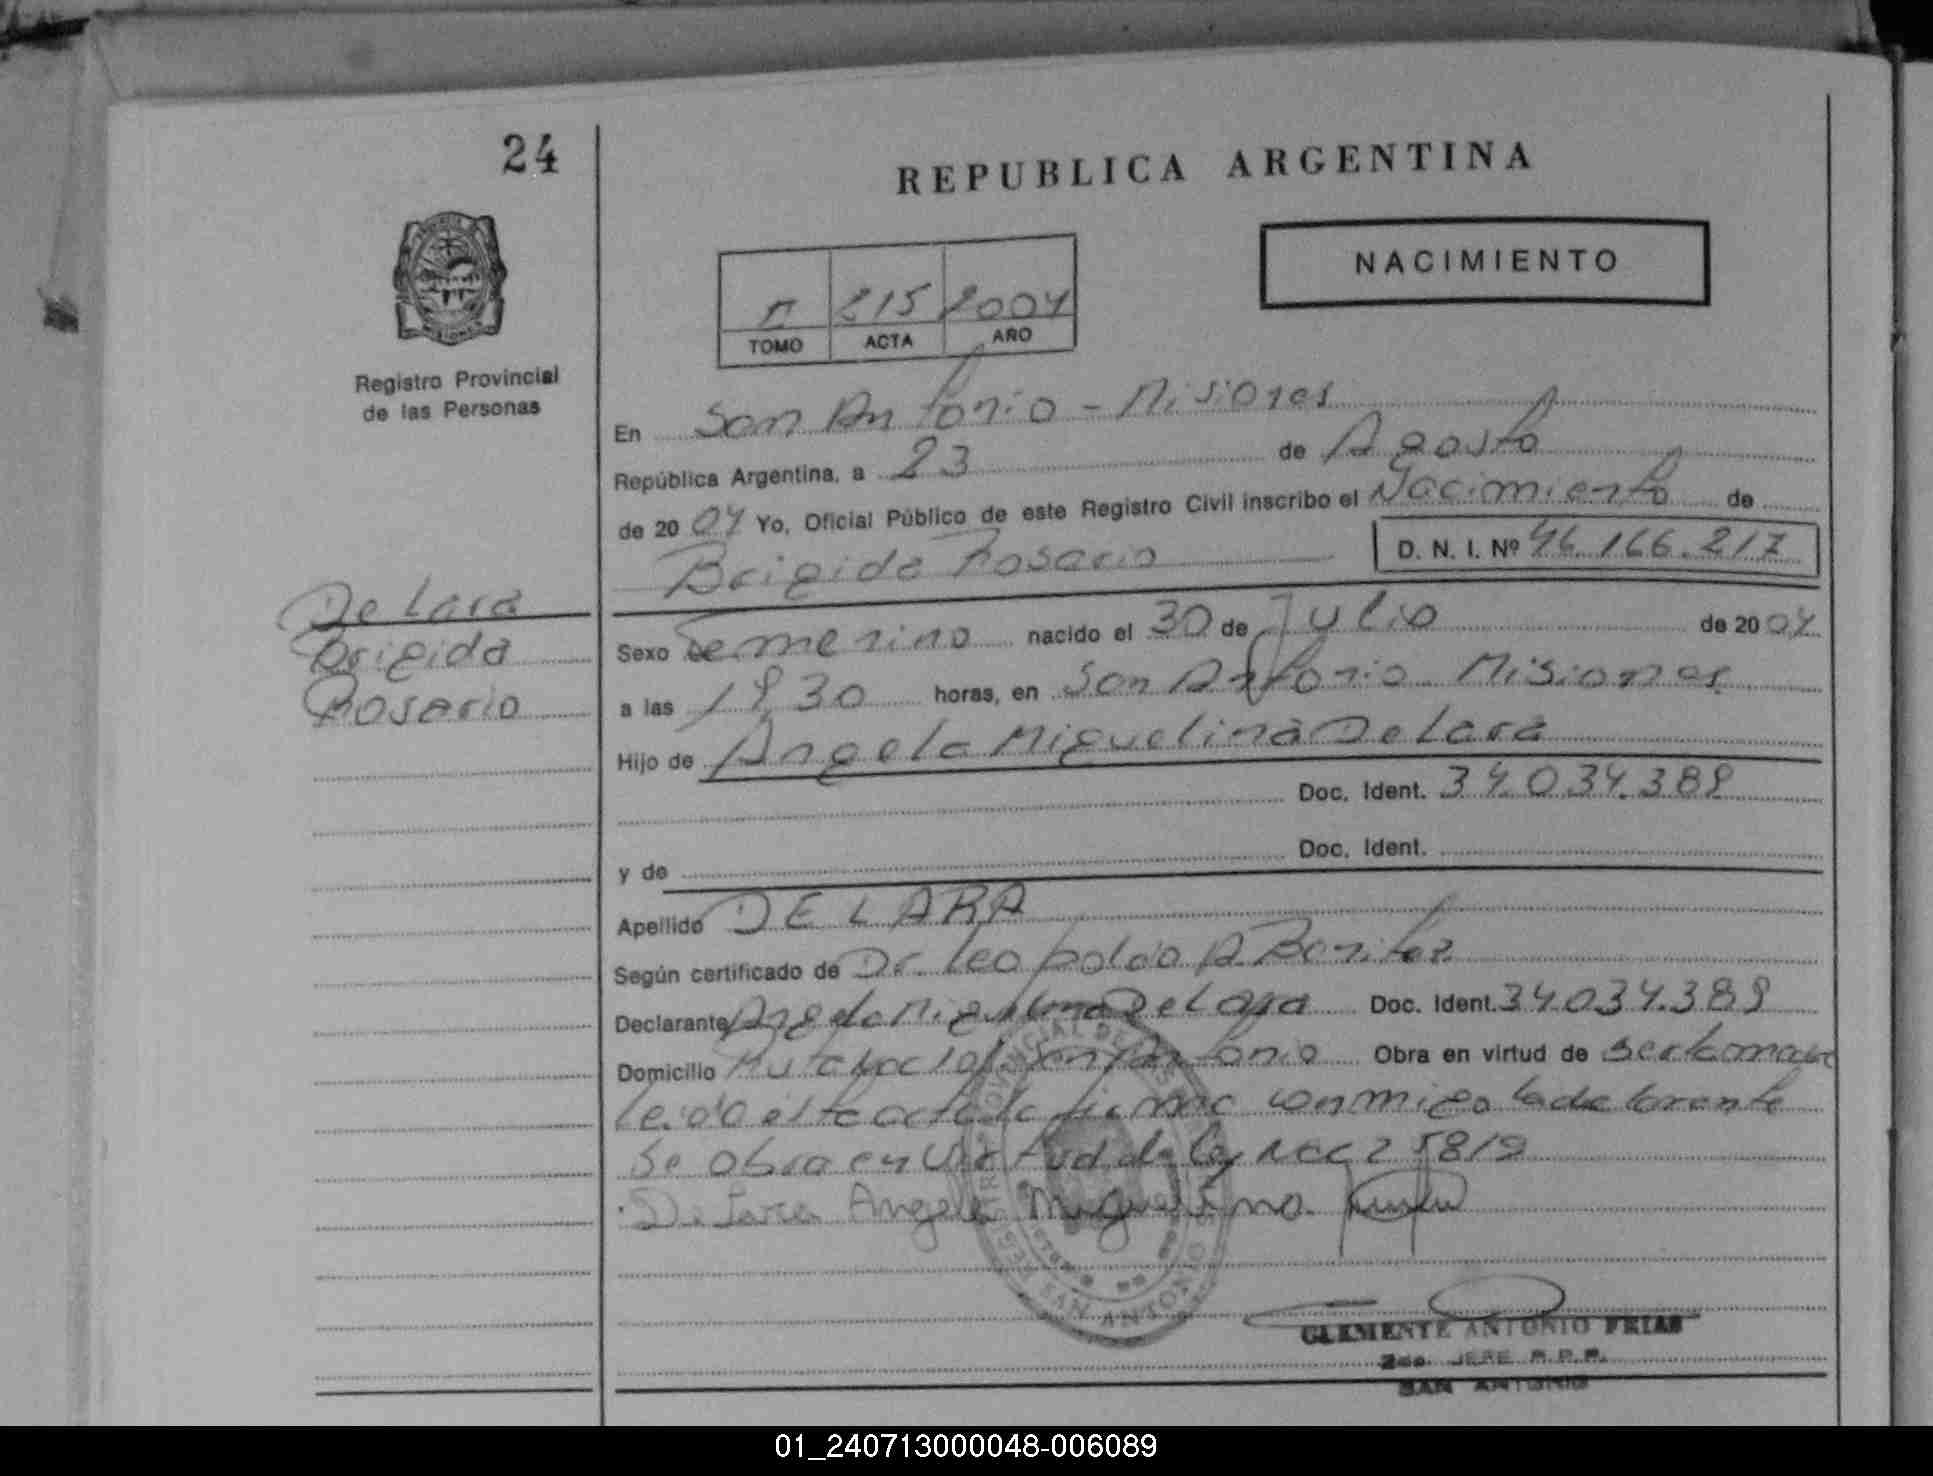 24
REPUBLICA ARGENTINA
NACIMIENTO
215 2004
TOMO ACTA AÑO
Registro Provincial
de las Personas
En San Antonio - Misiones
República Argentina, a 23 de Agosto
de 2004 Yo, Oficial Público de este Registro Civil inscribo el Nacimiento de
Brigida Rosario D. N. I. Nº 46.166.217
De Lara
Brigida
Rosario
Sexo Femenino nacido el 30 de Julio de 2004
a las 19,30 horas, en San Antonio Misiones
Hijo de Angela Miguelina De Lara
Doc. Ident. 34.034.389
y de Doc. Ident.
Apellido DE LARA
Según certificado de Dr. Leopoldo A Benitez
Declarante Angela Miguelina De Lara Doc. Ident. 34.034.389
Domicilio San Antonio Obra en virtud de ser la madre
Leido el acta la firma conmigo la declarante
Se obra en virtud de ley 25819
De Lara Angela Miguelina
SAN ANTONIO
CLEMENTE ANTONIO FRIAS
2do. JEFE R.P.P.
SAN ANTONIO
01_240713000048-006089